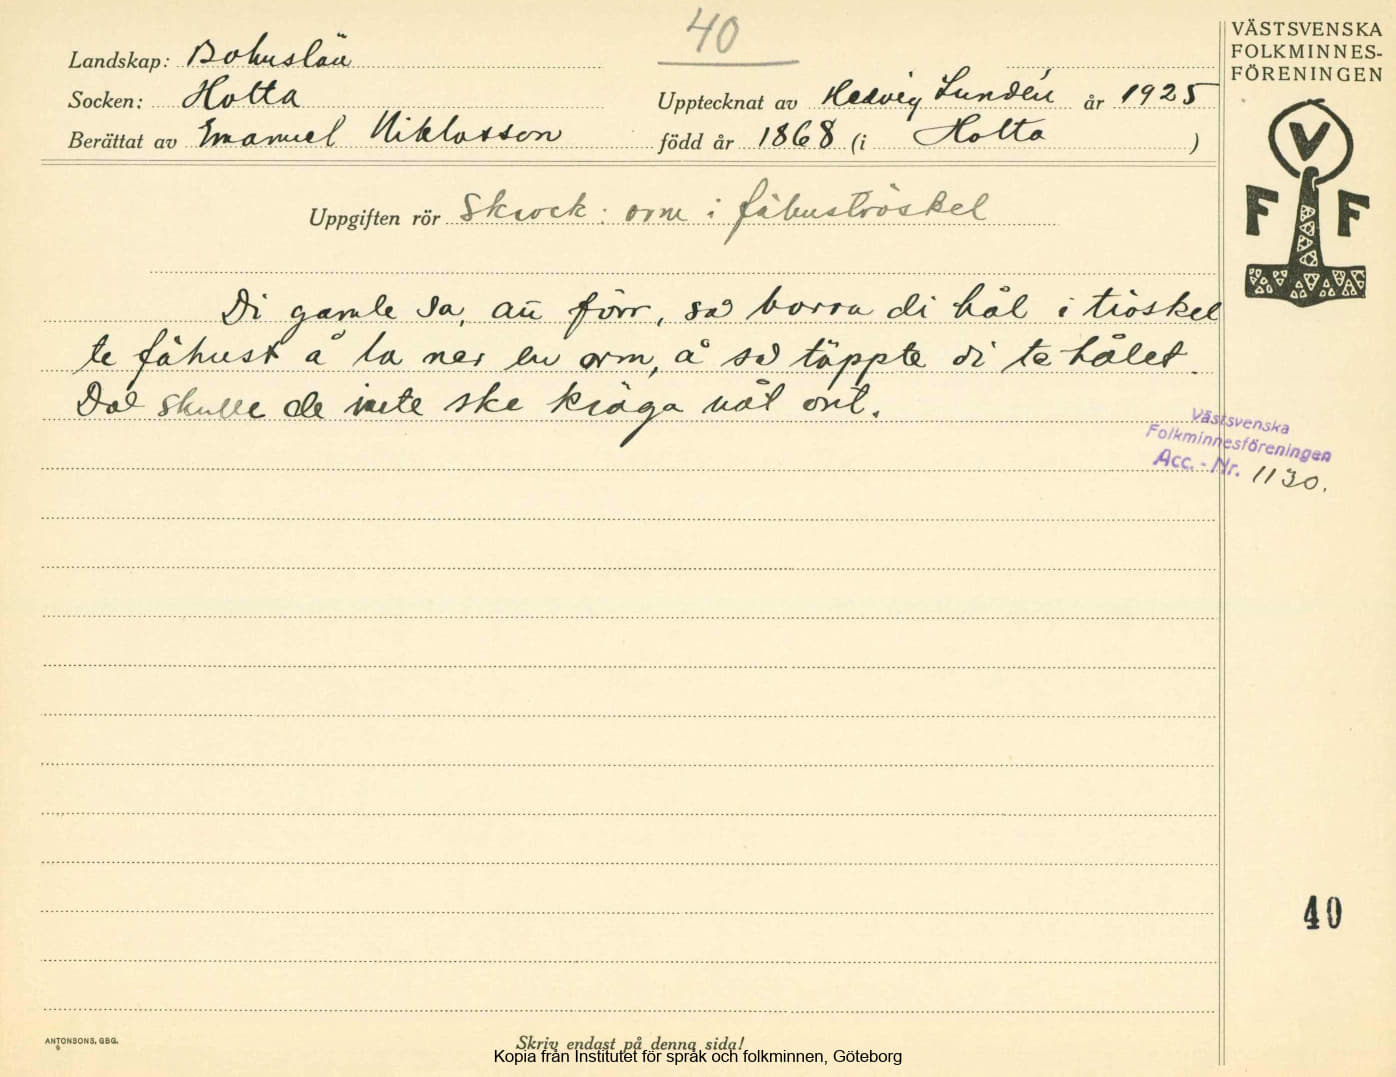 40
Landskap: Bohuslän
Socken: Holta
Upptecknat av Hedvig Lundén år 1925
Berättat av Emanuel Niklasson född år 1868 (i Holta)
VÄSTSVENSKA
FOLKMINNES-
FÖRENINGEN
V
F F
Uppgiften rör Skrock: orm i fähuströskel
Di gamle sa, att förr, så borra di hål i tröskel
te fähust å la ner en orm, å så täppte di te hålet.
Då skulle de inte ske kräga nåt ont.
Västsvenska
Folkminnesföreningen
Acc. - Nr. 1130.
40
ANTONSONS, GBG.
Skriv endast på denna sida!
Kopia från Institutet för språk och folkminnen, Göteborg